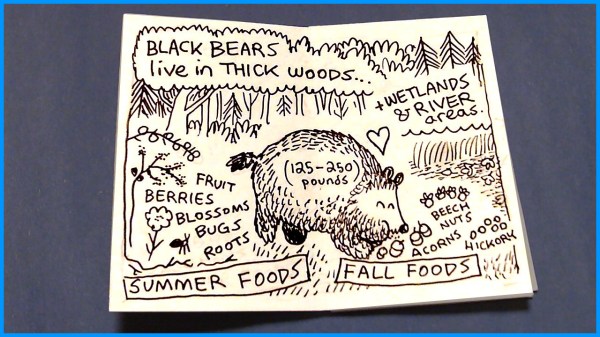 BLACK BEARS
live in THICK WOODS...
+ WETLANDS
& RIVER
areas.
(125-250)
pounds
FRUIT
BERRIES
BLOSSOMS
BUGS
ROOTS
SUMMER FOODS
BEECH
NUTS
ACORNS
HICKORY
FALL FOODS